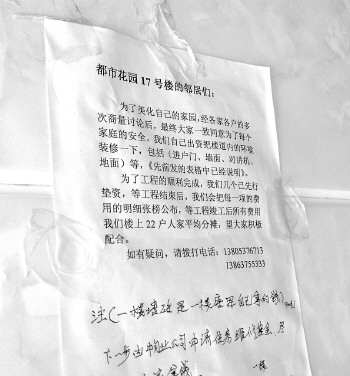 都市花园 17 号楼的邻居们：
为了美化自己的家园，经各家各户的多
次商量讨论后，最终大家一致同意为了每个
家庭的安全，我们自己出资把楼道内的环境
装修一下，包括（进户门、墙面、对讲机、
地面）等，《先前发的表格中已经说明》。
为了工程的顺利完成，我们几个已先行
垫资，等工程结束后，我们会把每一项的费
用的明细张榜公布，等工程竣工后所有费用
我们楼上 22 户人家平均分摊，望大家积极
配合。
如有疑问，请拨打电话：13805376713
13863755333
注（一楼
下一步由物业公司申请
一楼